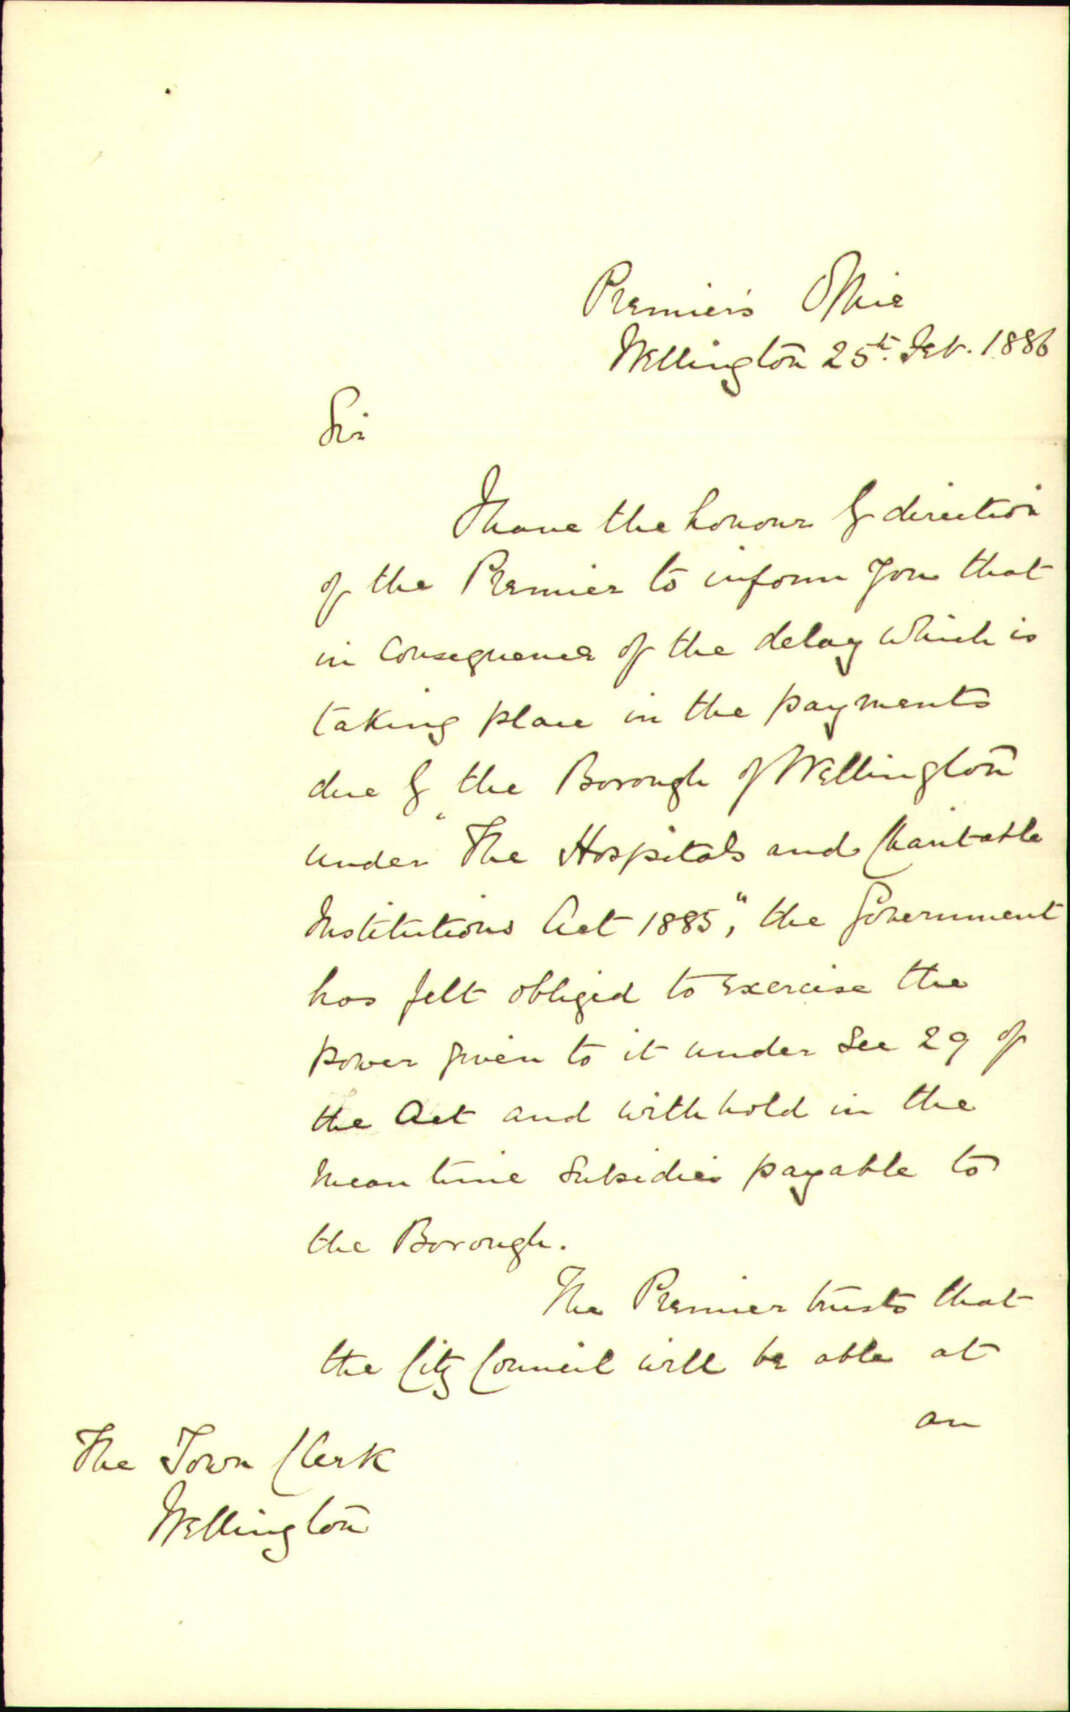 Premier's Office
Wellington 25th. Feb. 1886
Sir
I have the honour by direction
of the Premier to inform you that
in consequence of the delay which is
taking place in the payments
due by the Borough of Wellington
under "The Hospitals and Charitable
Institutions Act 1885", the Government
has felt obliged to exercise the
power given to it under Sec 29 of
the Act and withhold in the
mean time subsidies payable to
the Borough.
The Premier trusts that
the City Council will be able at
an
The Town Clerk
Wellington